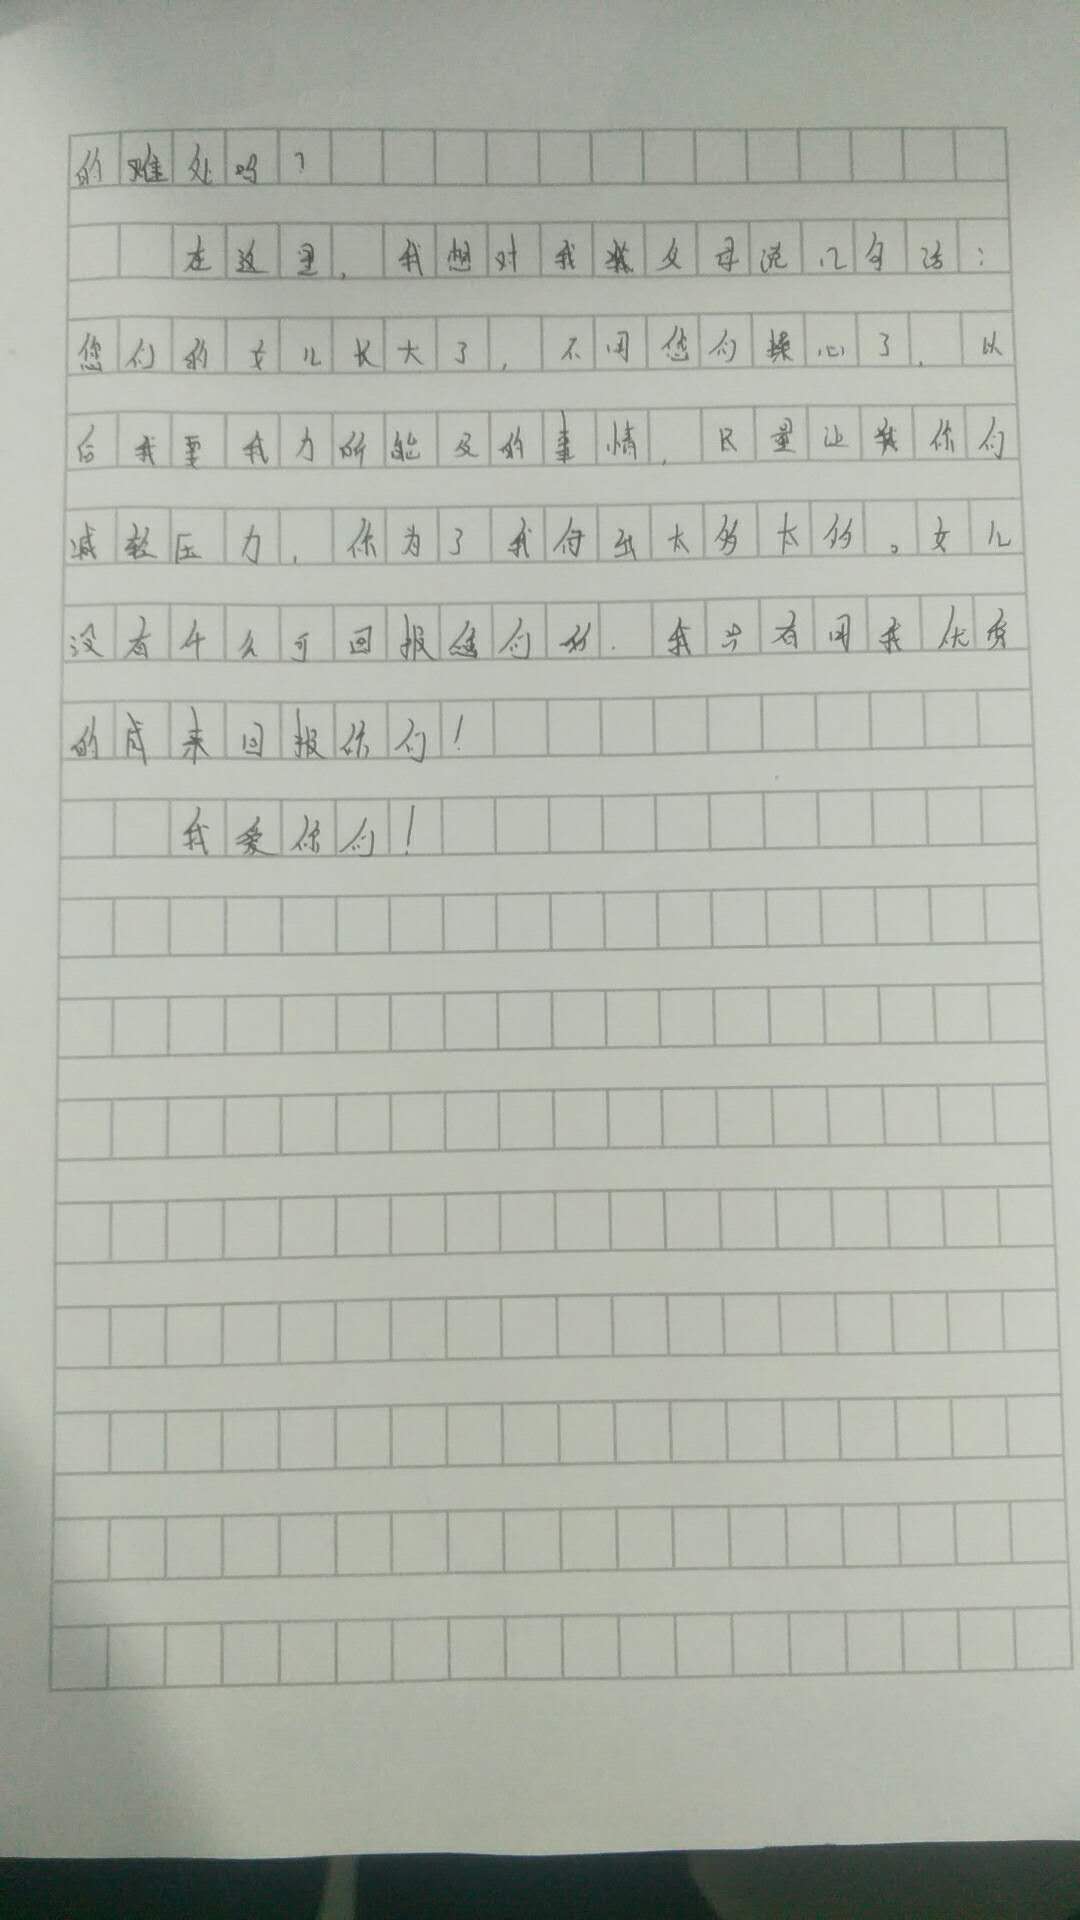 的难处吗？
在这里，我想对我父母说几句话：
您们的女儿长大了，不用您们操心了，以
后我要我力所能及的事情，尽量让你们
减轻压力，你为了我付出太多太多。女儿
没有什么可回报您们的，我只有用我优秀
的成来回报你们！
我爱你们！